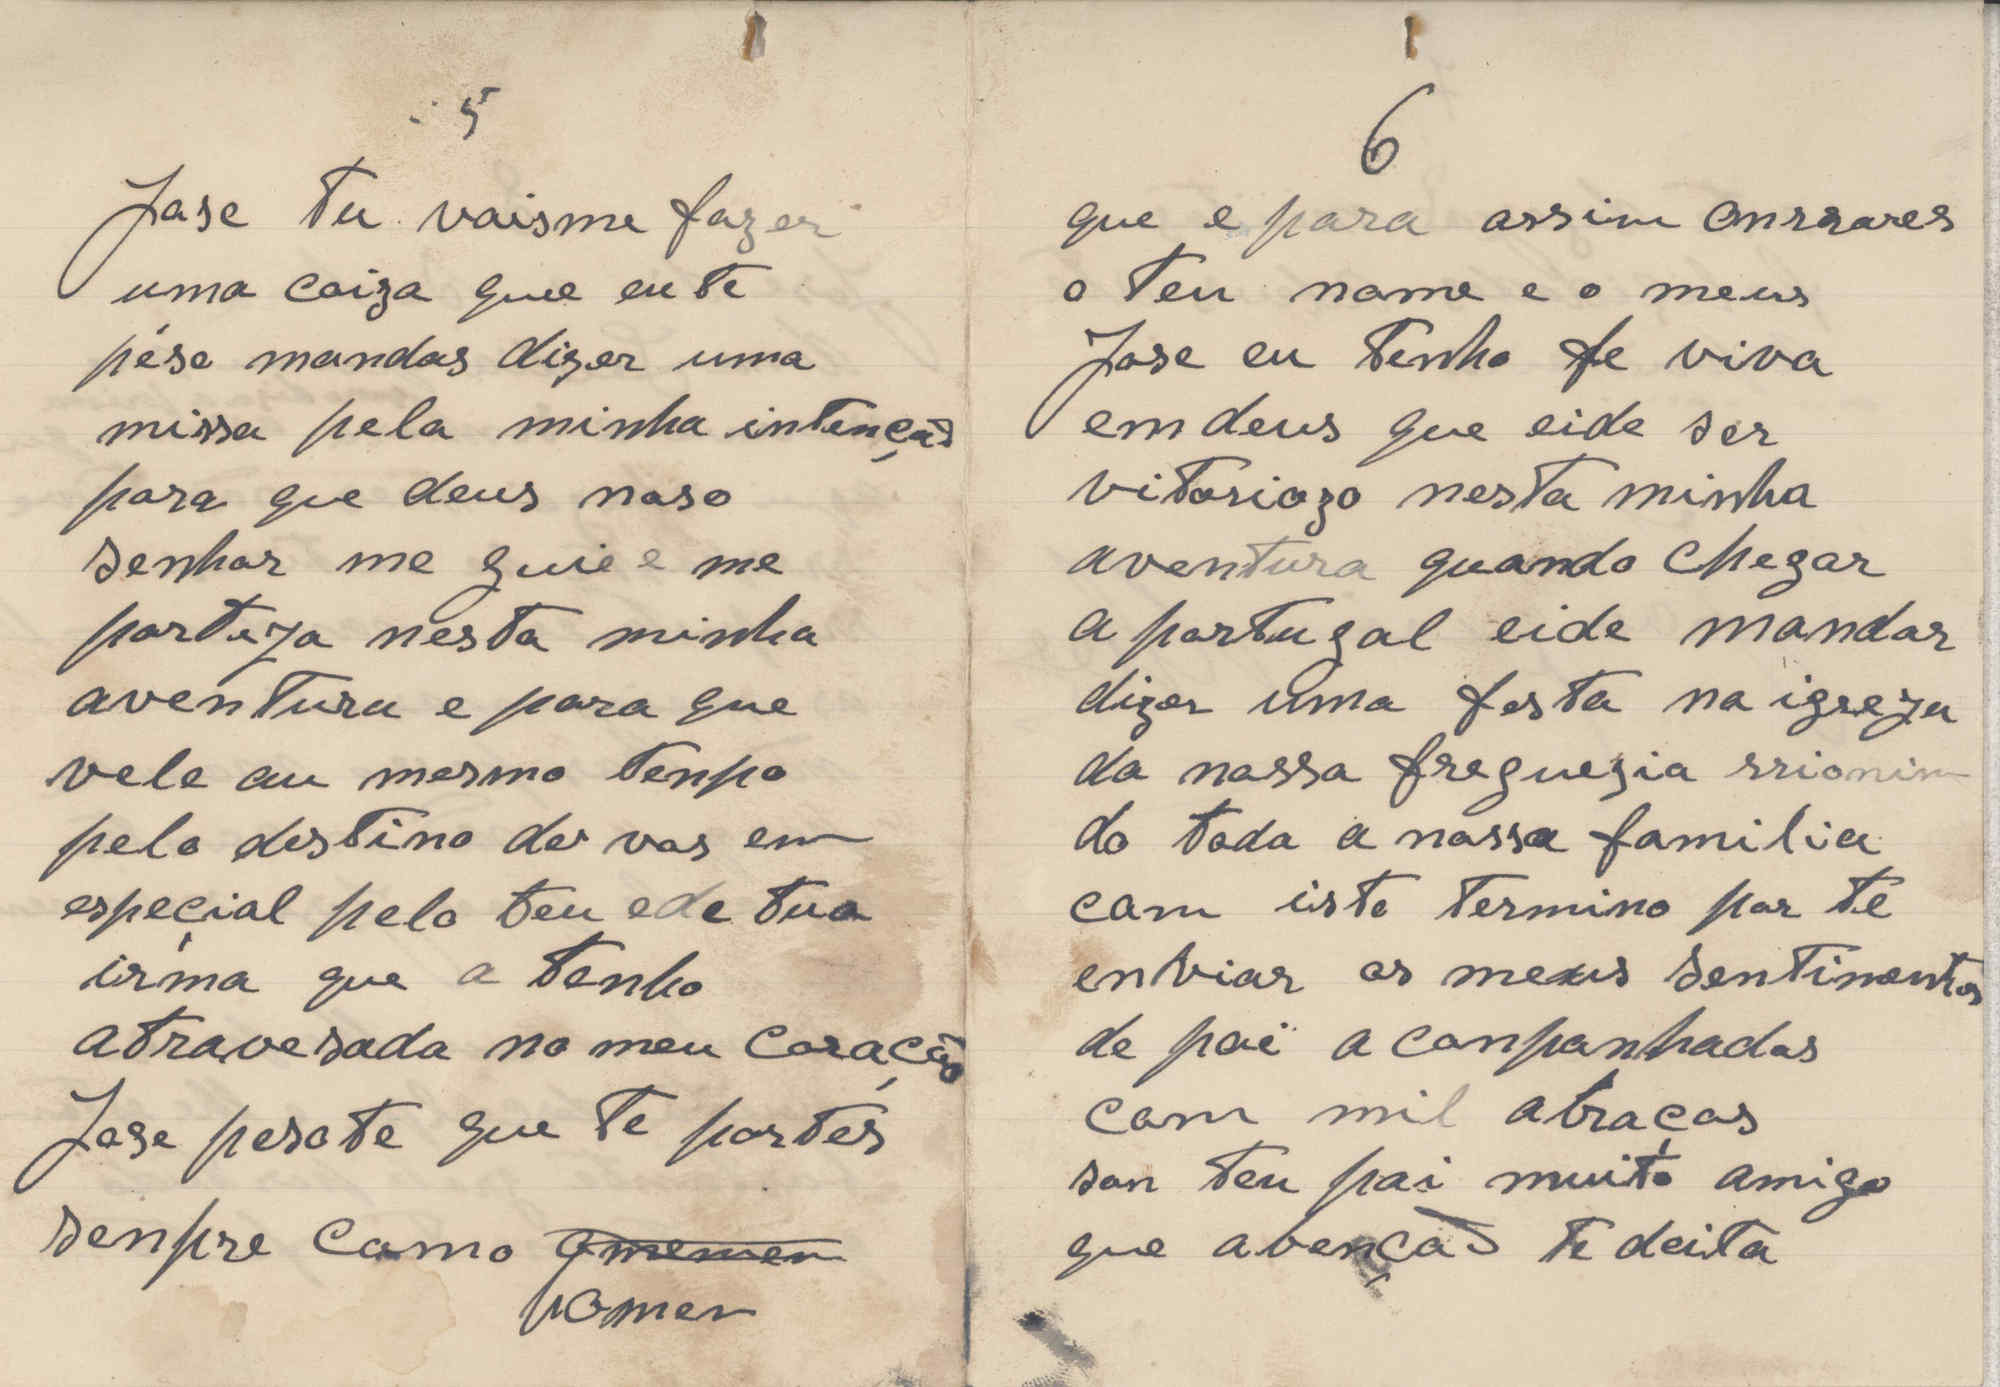 5
Jose tu vaisme fazer
uma coiza que eu te
péso mandas dizer uma
missa pela minha intenção
para que deus noso
senhor me guie e me
porteja nesta minha
aventura e para que
vele au mesmo tenpo
pelo destino de vos em
especial pelo teu e de tua
irma que a tenho
atravesada no meu coração
Jose pesote que te portes
senpre como
homen
6
que e para assim onrrares
o teu nome e o meus
Jose eu tenho fe viva
em deus que eide ser
vitoriozo nesta minha
aventura quando chegar
a portugal eide mandar
dizer uma festa na igreja
da nossa freguezia rrionin
do toda a nossa familia
com isto termino por te
enviar os meus sentimentos
de pai aconpanhados
com mil abraços
sou teu pai muito amigo
que a bençaõ te deita